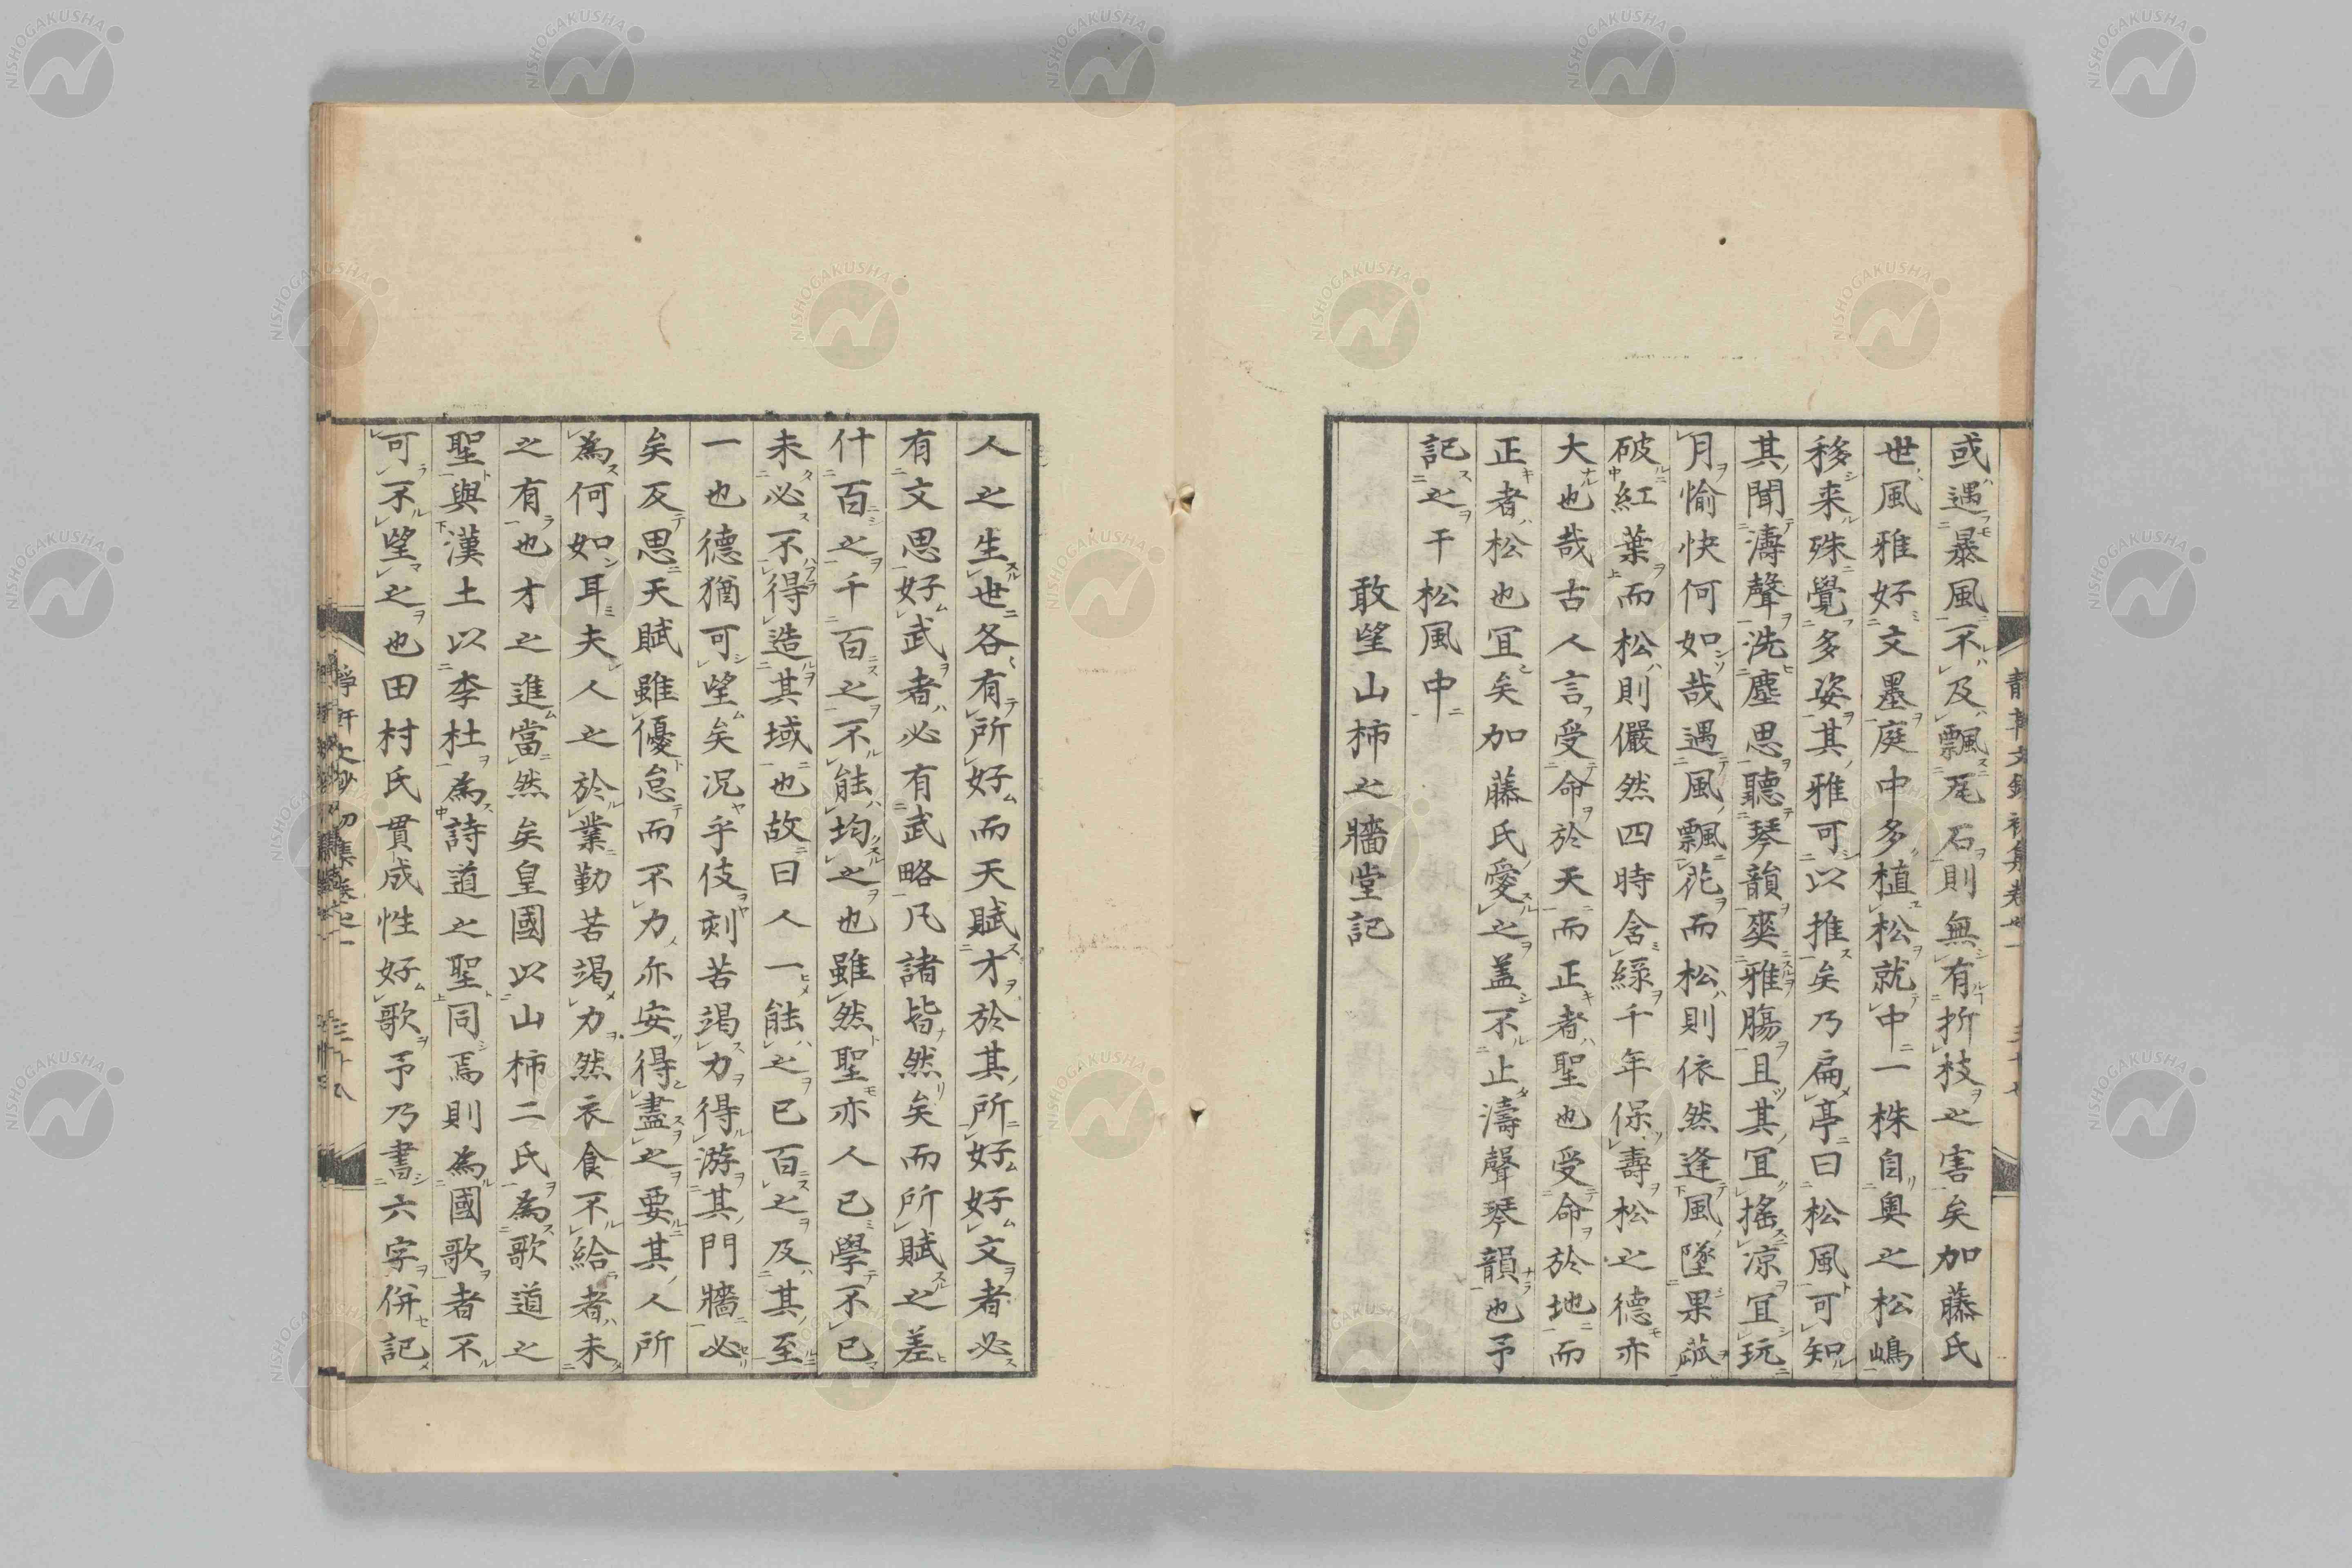 或遇暴風不及飄尾石則無有折枝之害矣加藤氏
世風雅好文墨庭中多植松就中一株自奧之松嶋
移来殊覺多姿其雅可以推矣乃扁亭曰松風可知
其聞濤聲洗塵思聽琴韻爽雅膓且其冝搖凉冝玩
月愉快何如哉遇風飄花而松則依然逢風墜果蓏
破紅葉而松則儼然四時含綠千年保壽松之德亦
大也哉古人言受命於天而正者聖也受命於地而
正者松也冝矣加藤氏愛之盖不止濤聲琴韻也予
記之于松風中
敢望山柿之牆堂記
人之生世各有所好而天賦才於其所好好文者必
有文思好武者必有武略凡諸皆然矣而所賦之差
什百之千百之不能均之也雖然聖亦人已學不已
未必不得造其域也故曰人一能之已百之及其至
一也德猶可望矣况乎伎刻苦竭力得游其門牆必
矣反思天賦雖優怠而不力亦安得盡之要其人所
為何如耳夫人之於業勤苦竭力然衣食不給者未
之有也才之進當然矣皇國以山柿二氏為歌道之
聖與漢土以李杜為詩道之聖同焉則為國歌者不
可不望之也田村氏貫成性好歌予乃書六字併記